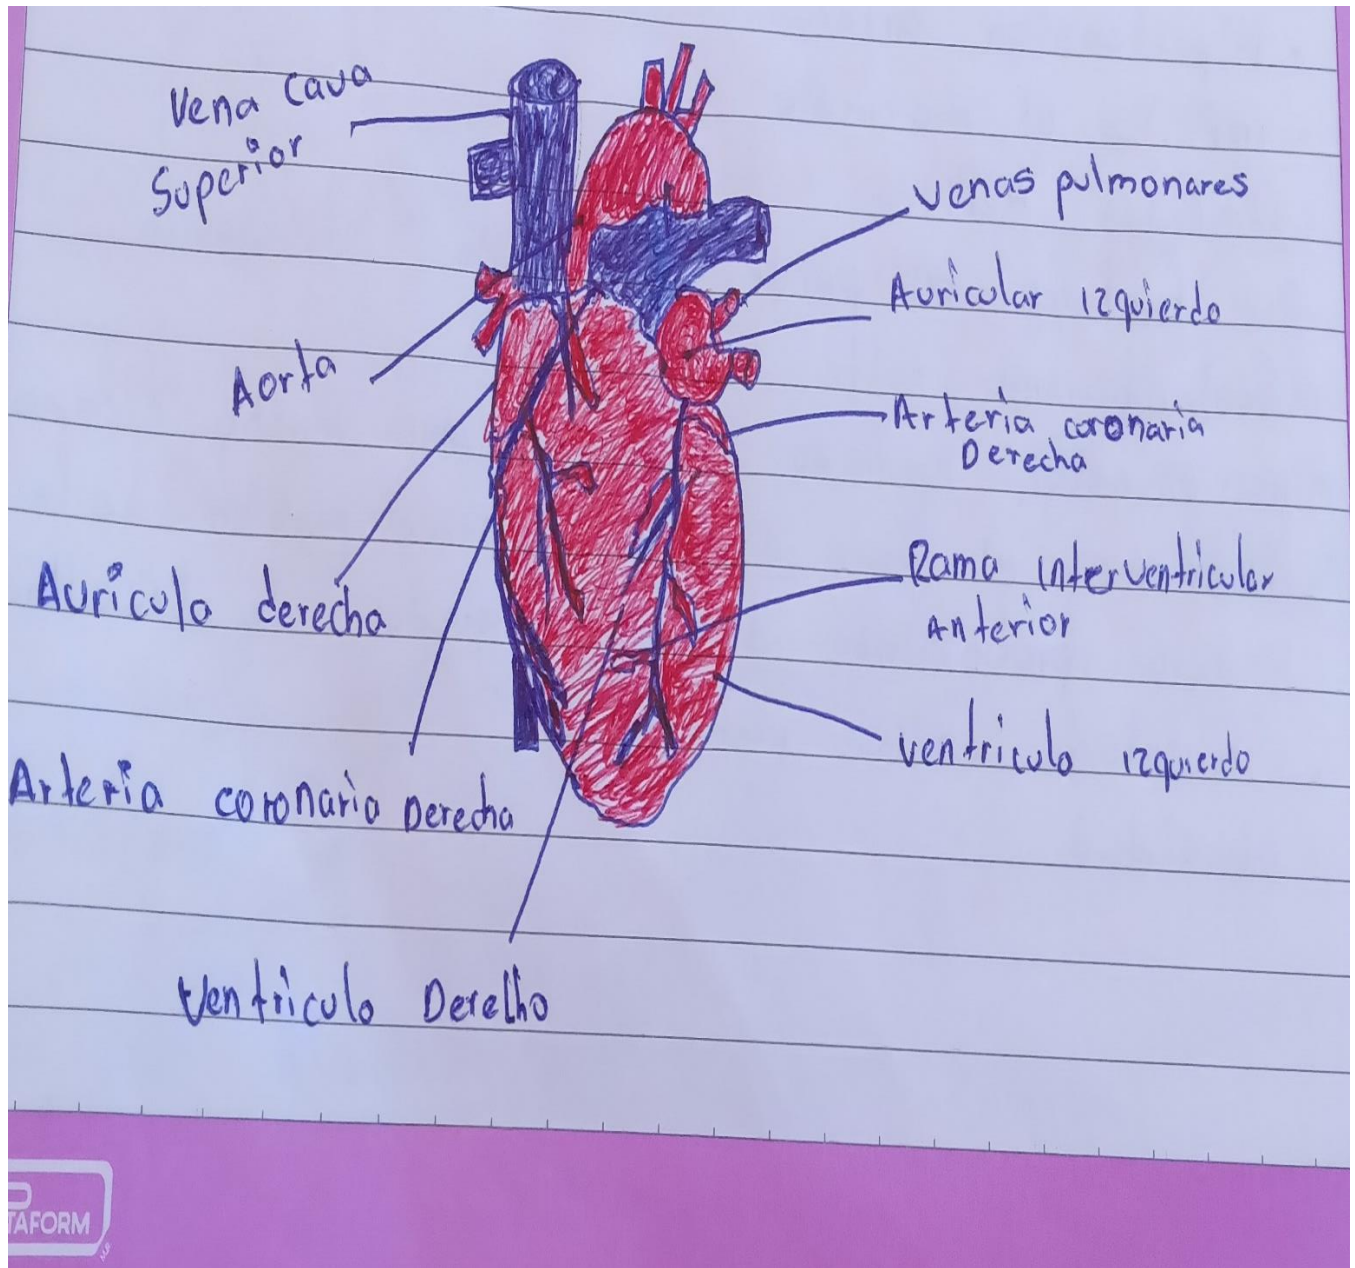 Vena Cava
Superior
Aorta
Auricula derecha
Arteria coronaria Derecha
Ventriculo Derecho
Venas pulmonares
Auricular izquierdo
Arteria coronaria
Derecha
Rama interventricular
Anterior
ventriculo izquierdo
TAFORM